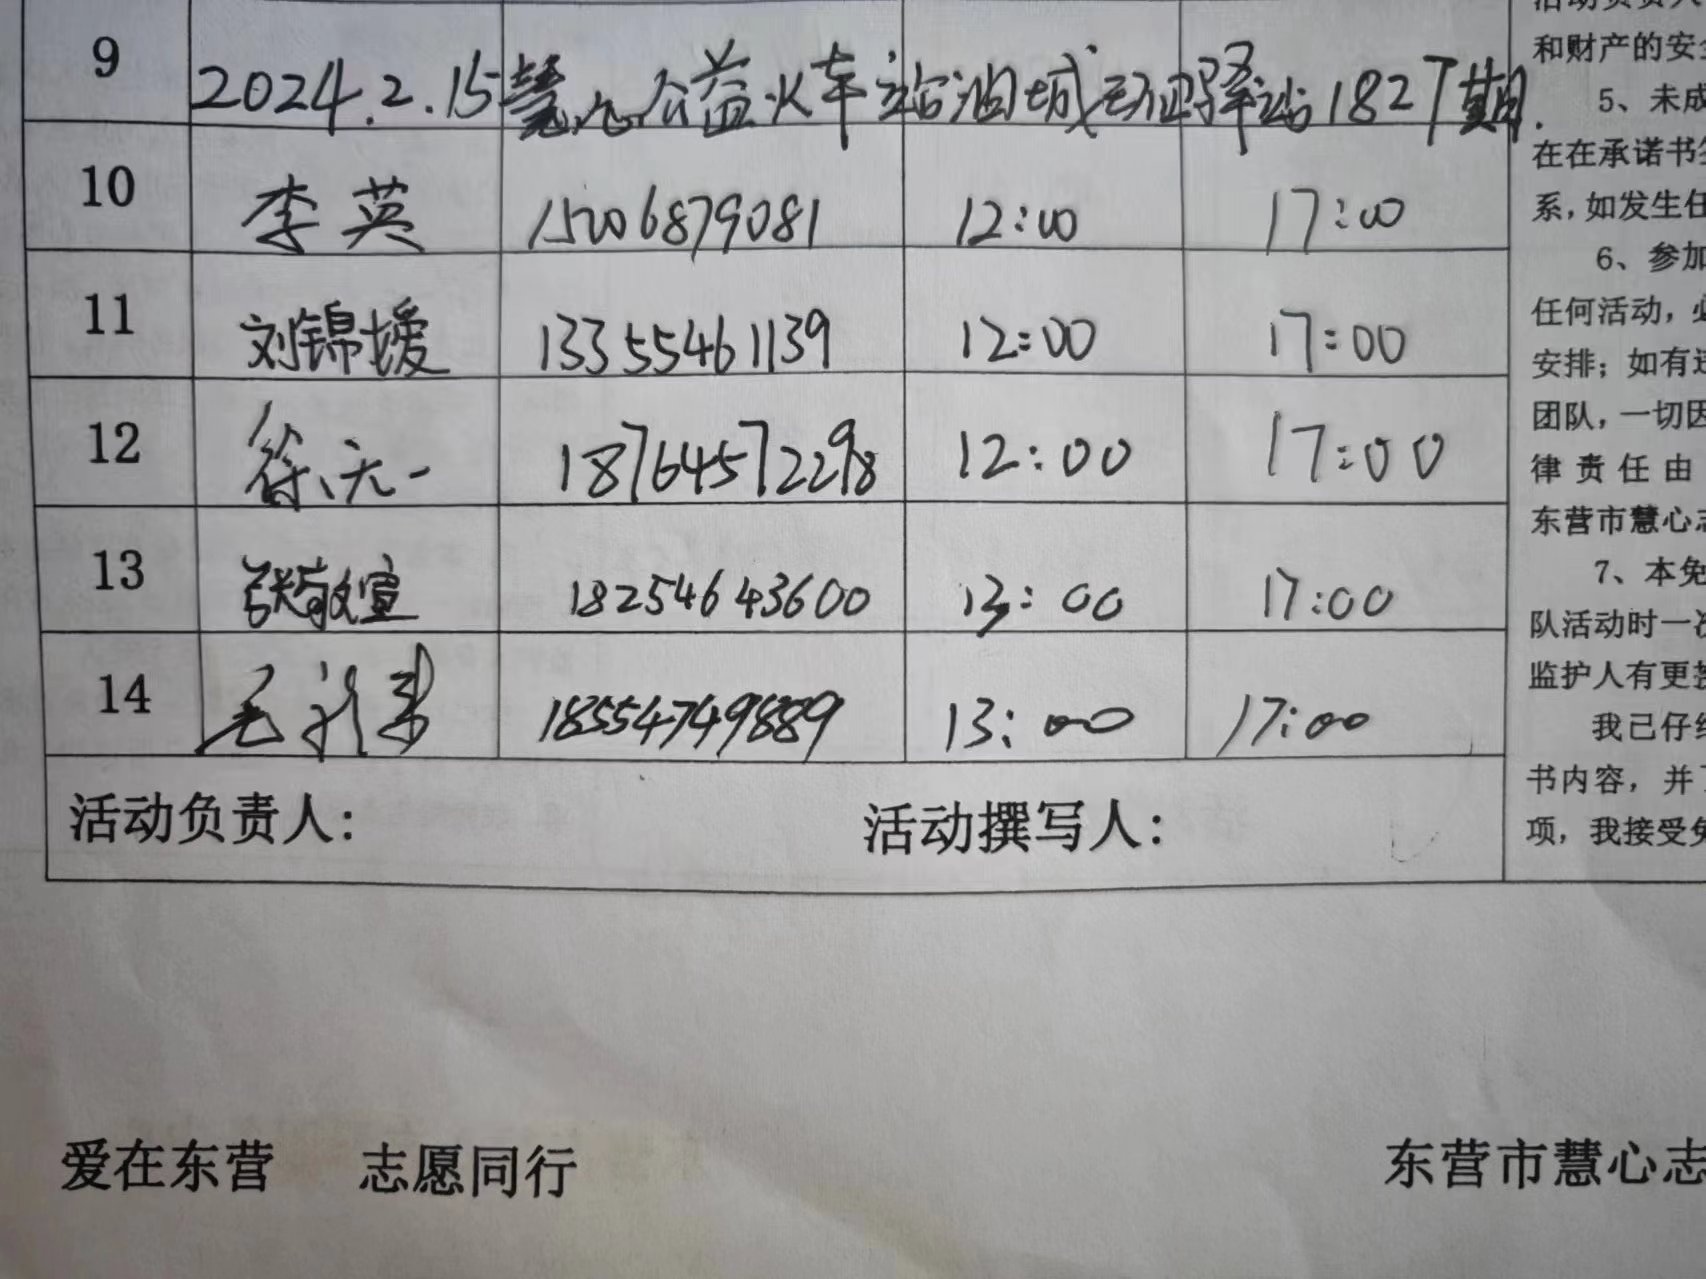 9 2024.2.15慧心公益火车站油城驿站1827期.
10 李英 15006879081 12:00 17:00
11 刘锦媛 13355461139 12:00 17:00
12 徐天一 18764572298 12:00 17:00
13 张敬宣 18254643600 13:00 17:00
14 毛 18554749889 13:00 17:00
活动负责人: 活动撰写人:
和财产的安全
5、未成
在在承诺书签
系,如发生任
6、参加
任何活动,必
安排;如有违
团队,一切因
律责任由
东营市慧心志
7、本免
队活动时一次
监护人有更
我已仔细
书内容,并了
项,我接受免
爱在东营 志愿同行 东营市慧心志